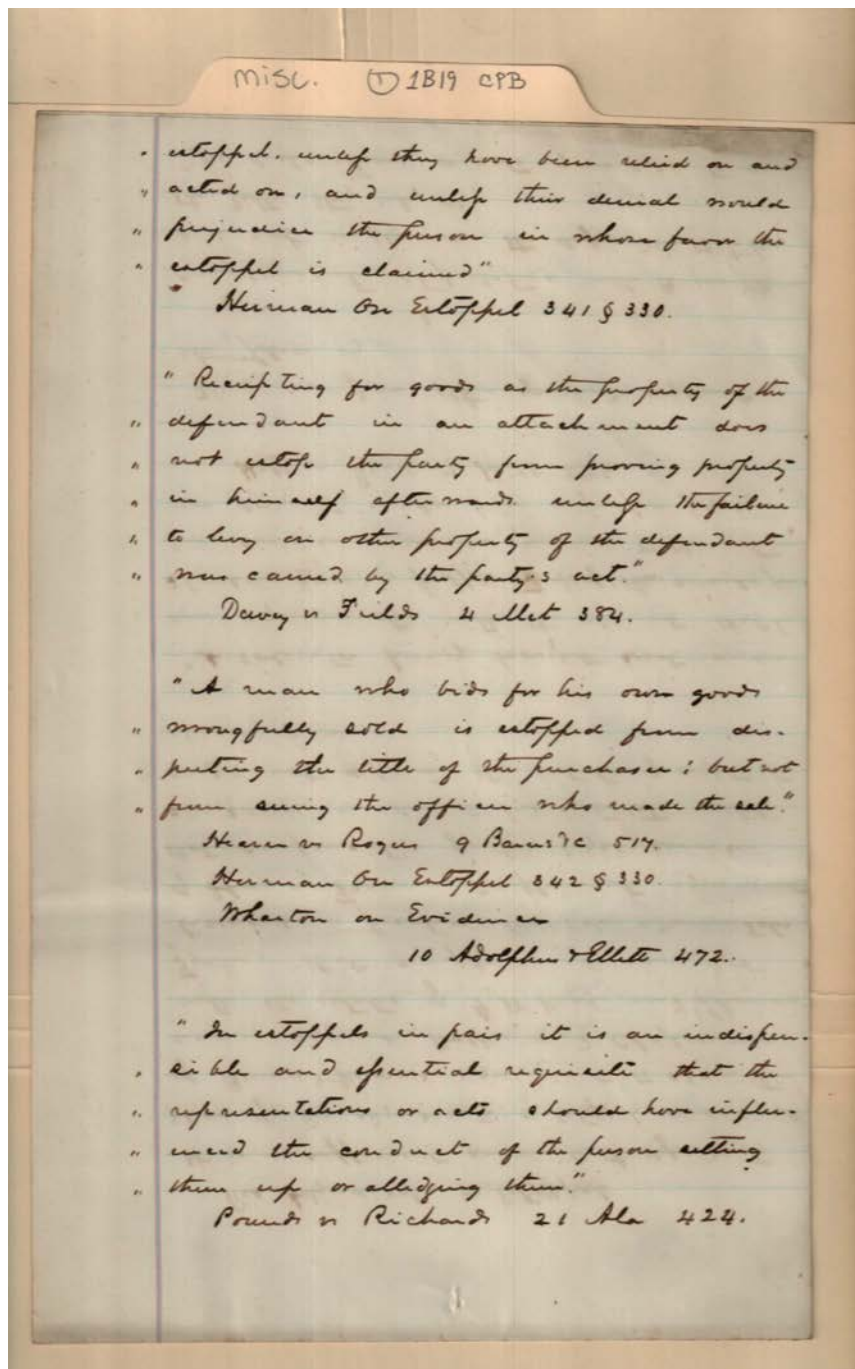 misc. ① 1B19 CPB
" estoppel. unless they have been relied on and
" acted on, and unless their denial would
" prejudice the person in whose favor the
" estoppel is claimed"
" Herman On Estoppel 341 § 330.
" Receipting for goods as the property of the
" defendant in an attachment does
" not estop the party from proving property
" in himself afterwards unless the failure
" to levy on other property of the defendant
" was caused by the party's act."
Dewey vs Fields 4 Met 384.
" A man who bids for his own goods
" wrongfully sold is estopped from dis-
" puting the title of the purchaser; but not
" from suing the officer who made the sale."
Hearn vs Rogers 9 Barn & C 517.
Herman On Estoppel 342 § 330.
Wharton on Evidence
10 Adolphus & Ellett 472.
" In estoppels in pais it is an indispen-
" sible and essential requisite that the
" representations or acts should have influ-
" enced the conduct of the person setting
" them up or alledging them."
Pounds vs Richards 21 Ala 424.